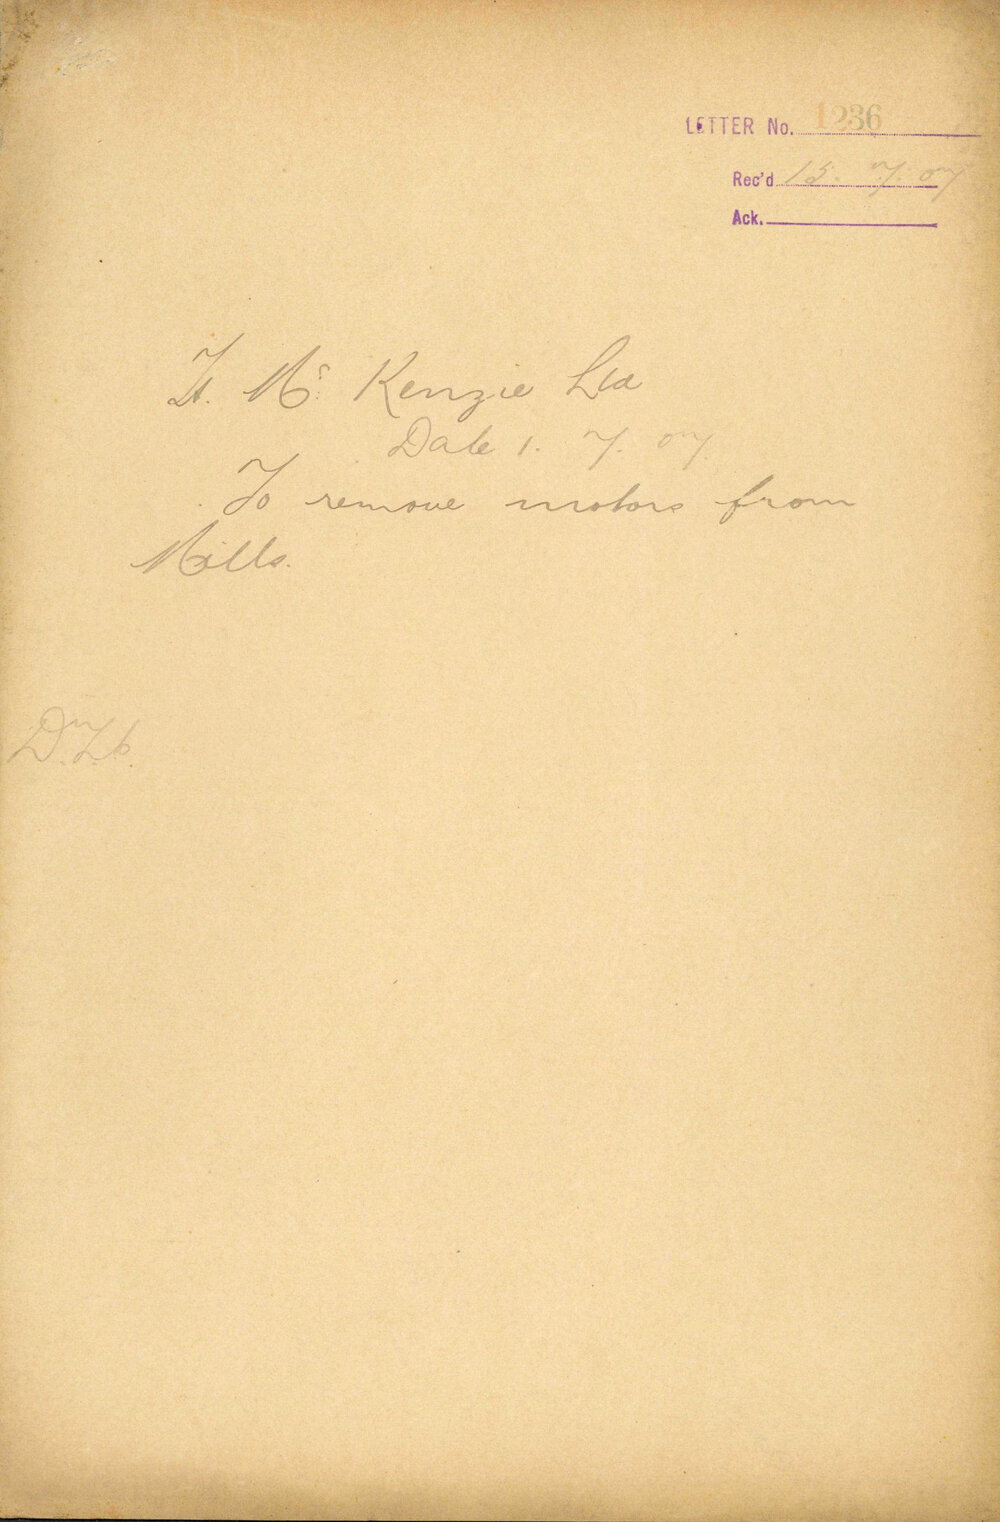 LETTER No. 1236
Rec'd 15. 7. 07
Ack.
Mc Kenzie Ltd
Date 1. 7. 07.
To remove motors from
Mills.